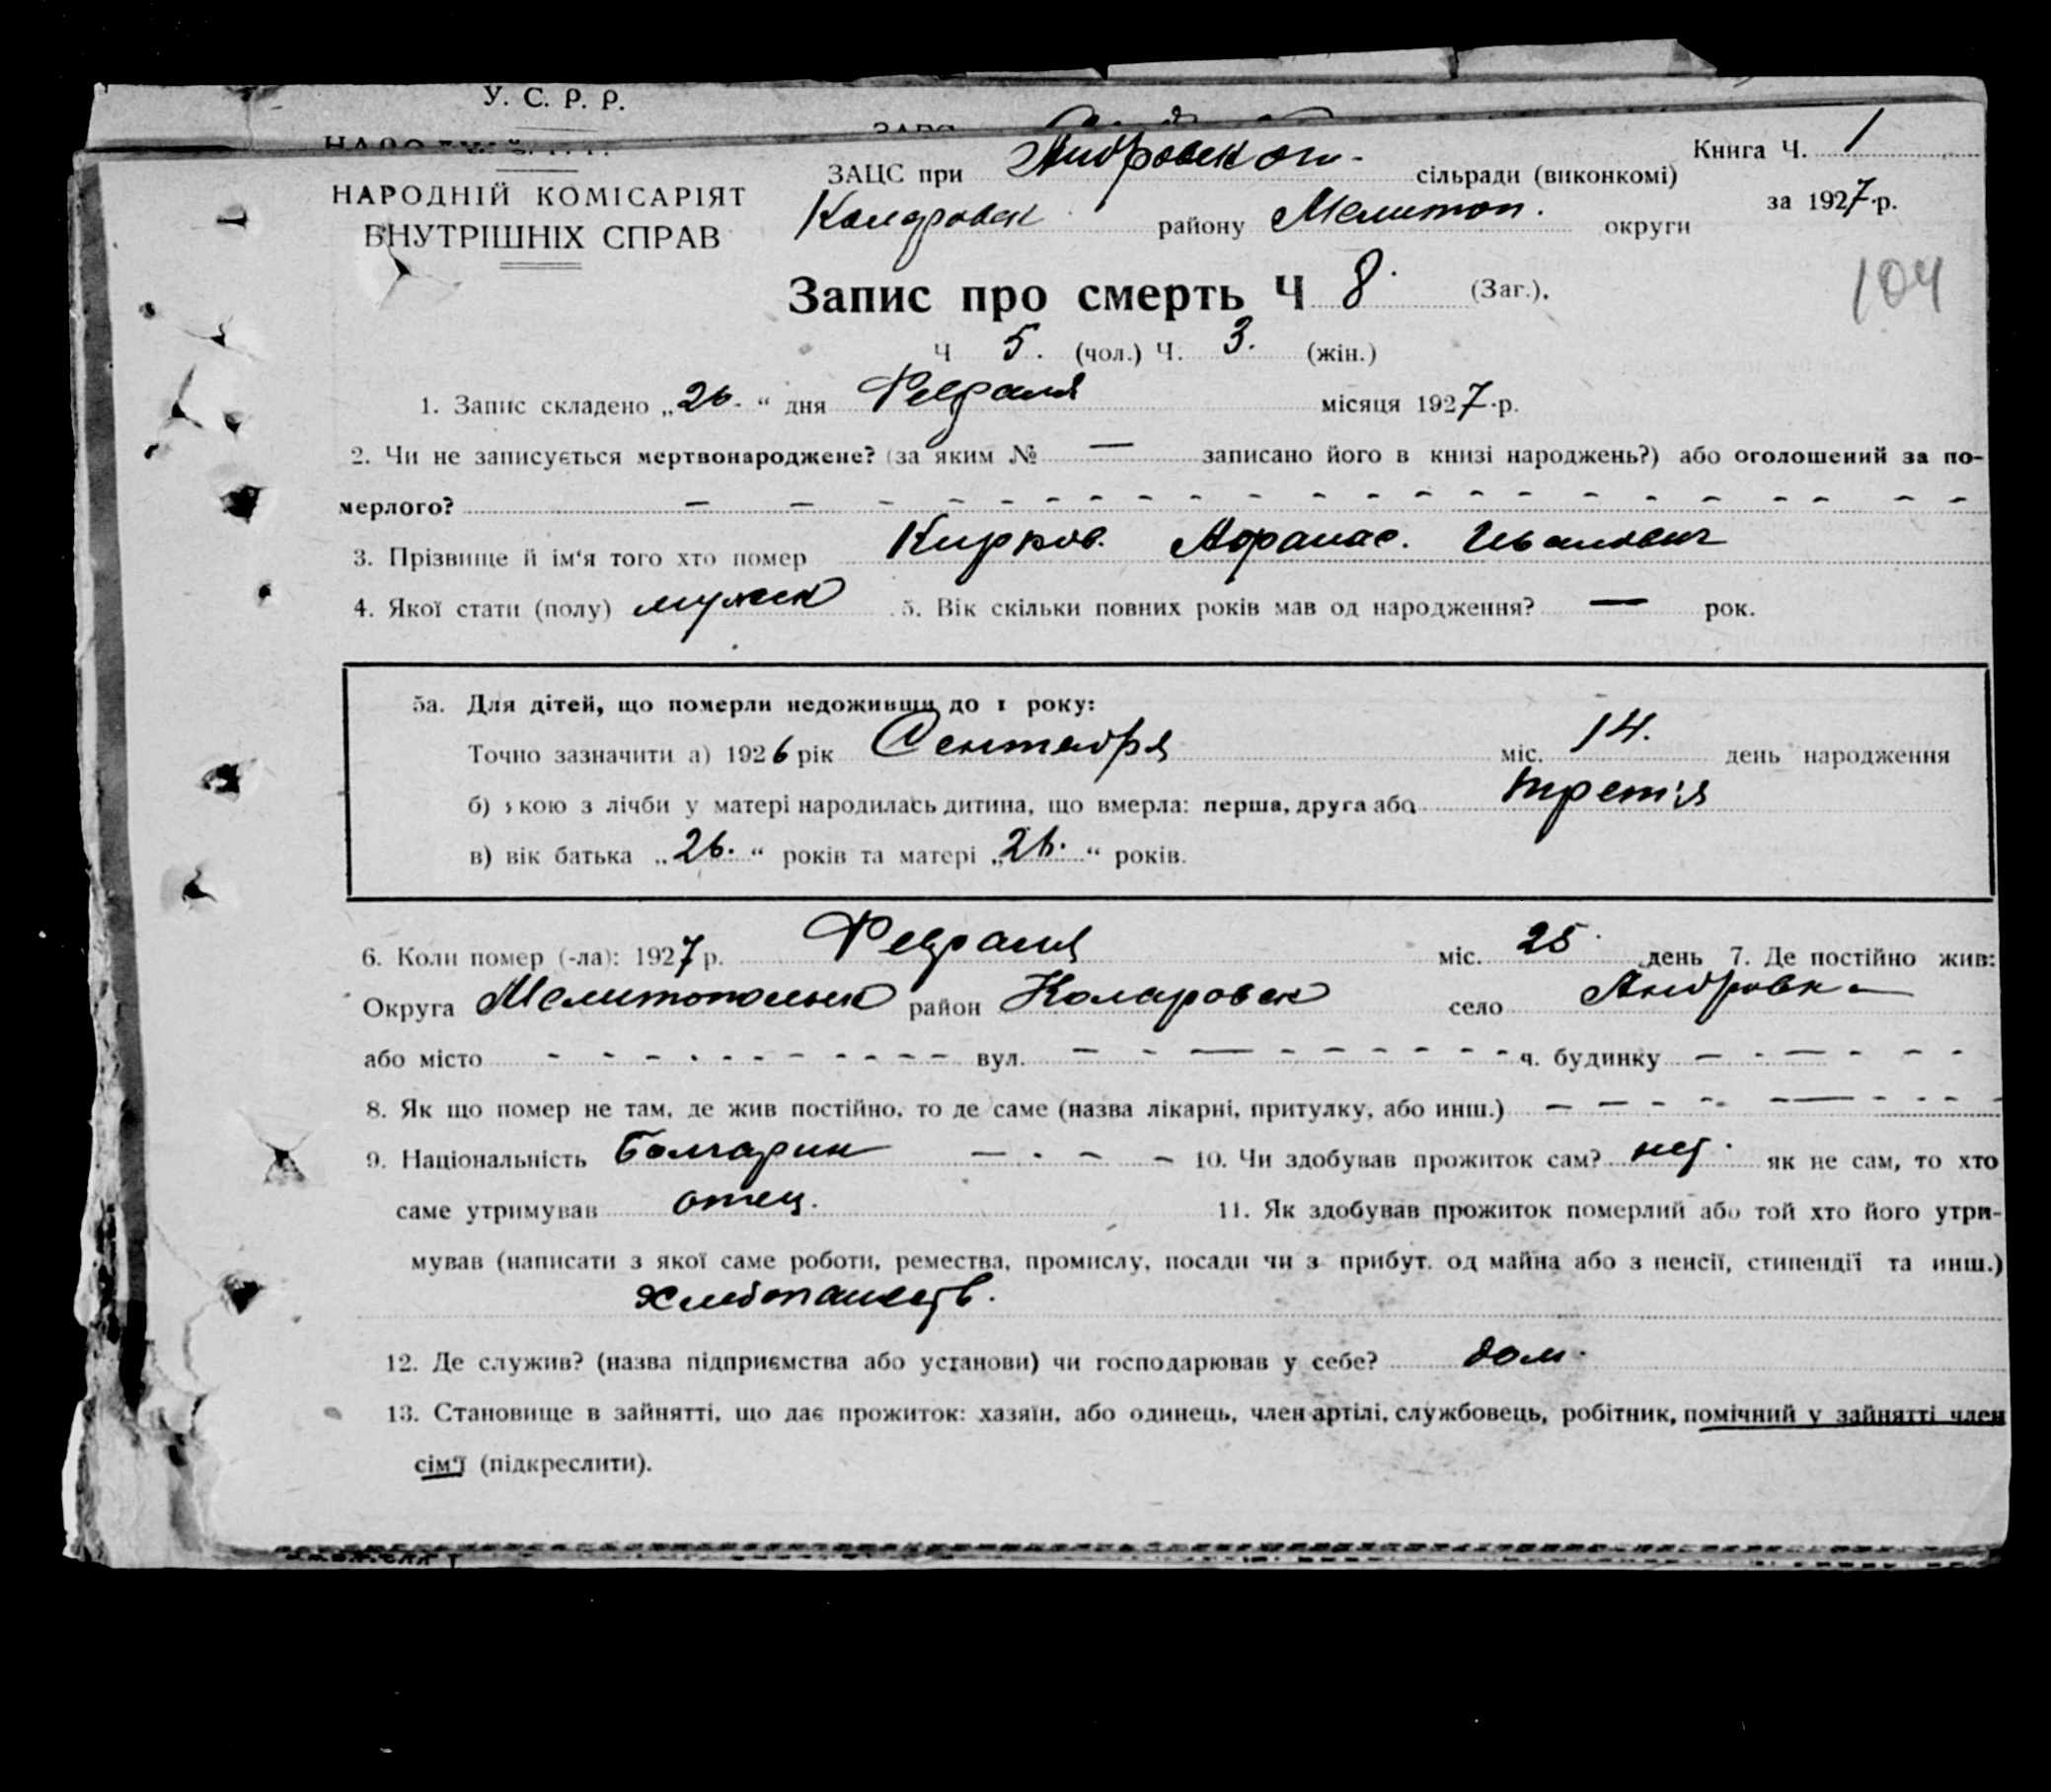 У. С. Р. Р.
НАРОДНІЙ КОМІСАРІЯТ
ВНУТРІШНІХ СПРАВ
ЗАЦС при Андровском сільради (виконкомі)
Коларовск району Мелитоп. округи
Книга Ч. 1
за 1927 р.
104
Запис про смерть Ч 8. (Заг.).
Ч 5. (чол.) Ч. 3. (жін.)
1. Запис складено „26.“ дня Февраля місяця 1927 р.
2. Чи не записується мертвонароджене? (за яким № — записано його в книзі народжень?) або оголошений за по-
мерлого? - - - - - - - - - - - - - - - - - - - -
3. Прізвище й ім'я того хто помер Кирков. Афанас. Иванович
4. Якої стати (полу) мужск 5. Вік скільки повних років мав од народження? — рок.
5а. Для дітей, що померли недоживши до 1 року:
Точно зазначити а) 1926 рік Сентября міс. 14. день народження
б) якою з лічби у матері народилась дитина, що вмерла: перша, друга або третія
в) вік батька „26.“ років та матері „26.“ років.
6. Коли помер (-ла): 1927 р. Февраля міс. 25. день 7. Де постійно жив:
Округа Мелитопольск район Коларовск село Андровка
або місто - - - - - - - - - - вул. - - - - - - - - - ч. будинку - - - - - -
8. Як що помер не там, де жив постійно, то де саме (назва лікарні, притулку, або инш.) - - - - - - - -
9. Національність Болгарин - - - - 10. Чи здобував прожиток сам? нет. як не сам, то хто
саме утримував отец. 11. Як здобував прожиток померлий або той хто його утри-
мував (написати з якої саме роботи, ремества, промислу, посади чи з прибут. од майна або з пенсії, стипендії та инш.)
Хлебопашеств.
12. Де служив? (назва підприємства або установи) чи господарював у себе? дом.
13. Становище в зайнятті, що дає прожиток: хазяїн, або одинець, член артілі, службовець, робітник, помічний у зайнятті член
сім'ї (підкреслити).